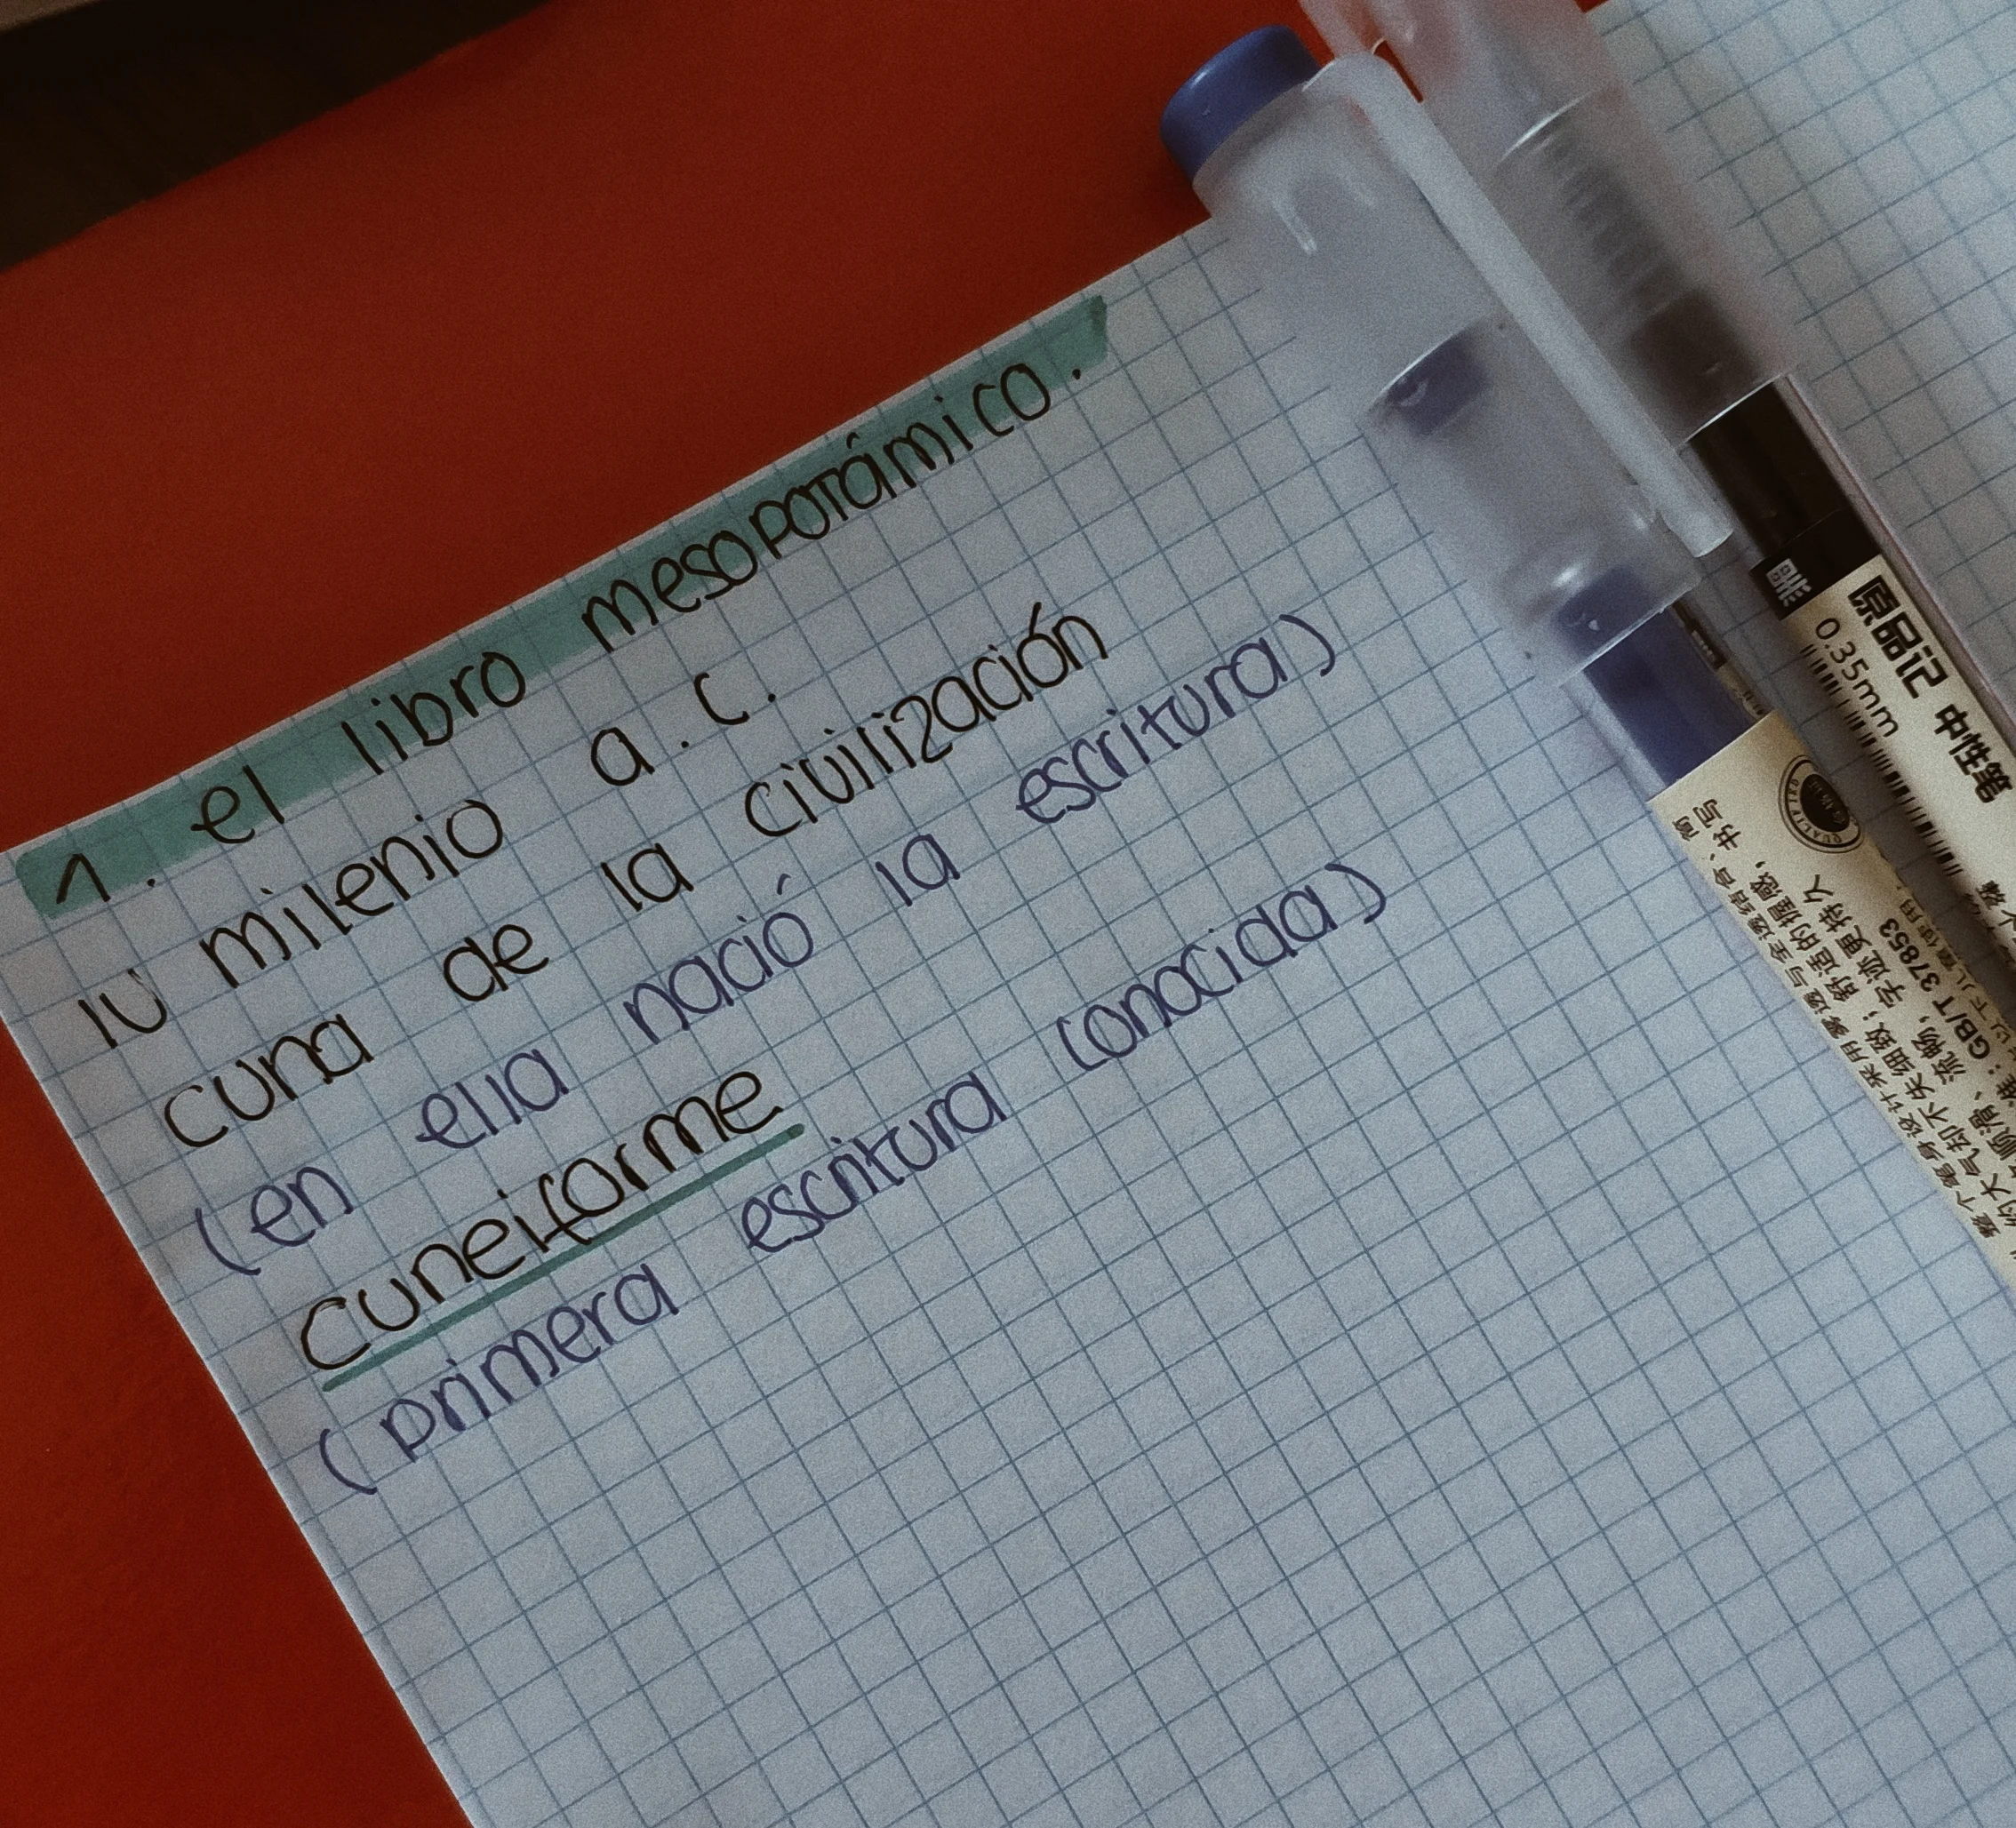 1. el libro mesopotámico.
IV milenio a. C.
cuna de la civilización
(en ella nació la escritura)
cuneiforme
(primera escritura conocida)
原品记 中性笔
0.35mm
QUALITY
舒适的握感,书写
字迹更持久
GB/T 37853